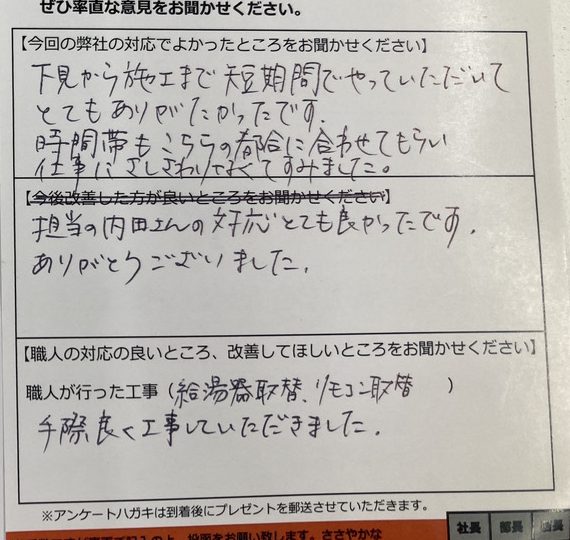 ぜひ率直な意見をお聞かせください。
【今回の弊社の対応でよかったところをお聞かせください】
下見から施工まで短期間でやっていただいて
とてもありがたかったです.
時間帯もこちらの都合に合わせてもらい
仕事にさしさわりなくてすみました。
【今後改善した方が良いところをお聞かせください】
担当の内田さんの対応とても良かったです.
ありがとうございました.
【職人の対応の良いところ、改善してほしいところをお聞かせください】
職人が行った工事（給湯器取替、リモコン取替）
手際良く工事していただきました.
※アンケートハガキは到着後にプレゼントを郵送させていただきます。
の上、投函をお願い致します。ささやかな
社長 部長 店長